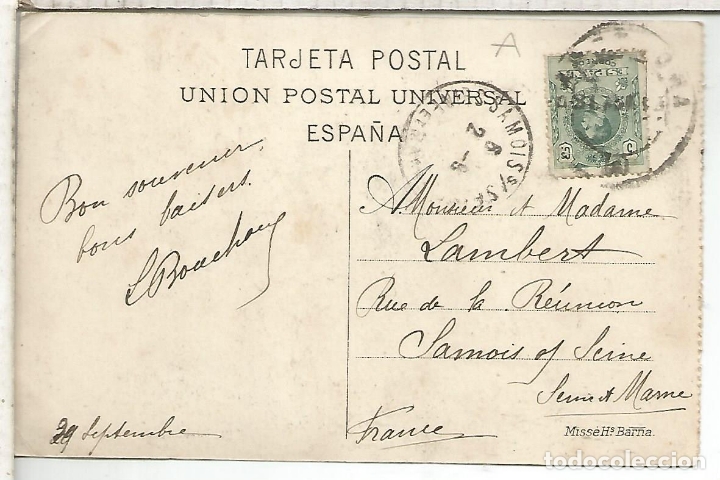 A
TARJETA POSTAL
UNION POSTAL UNIVERSAL
ESPAÑA
SAMOIS S/S
26 -8
Bon souvenir
bons baisers.
A Monsieur et Madame
Lambert
Rue de la Réunion
Samois s/ Seine
Seine et Marne
France
Septembre
Missé Hs Barña.
todocoleccion.net